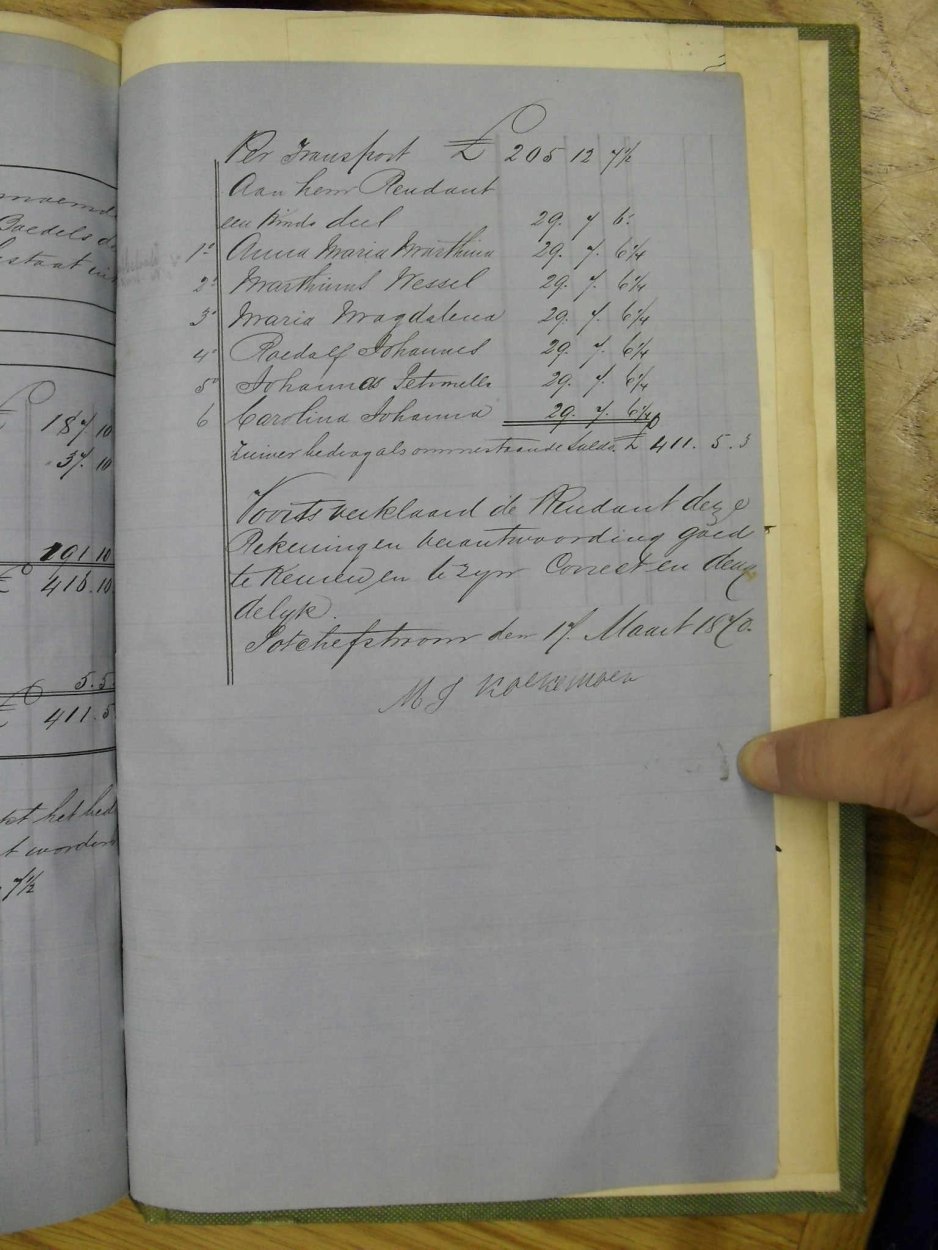 noemde
Boedels de
estaat uit
187 10
37. 10
191 10
£ 416. 10
5. 5
£ 411. 5
het bed
t worden
7½
Per Transport £ 205 12 7½
Aan hem Rendant
een kinds deel 29. 7 6.
1e Anna Maria Marthina 29. 7. 6¼
2e Marthinus Wessel 29. 7. 6¼
3e Maria Magdalena 29. 7. 6¼
4e Roedolf Johannes 29. 7. 6¼
5e Johannas Petronella 29. 7. 6¼
6 Carolina Johanna 29. 7. 6¼
Zuiver bedrag als ommestaande Saldo £ 411. 5. 3
Voorts verklaard de Rendant deze
Rekening en verantwoording goed
te Keuren, en te zyn Correct en deug
delyk.
Potchefstroom den 17. Maart 1870.
M J Koekemoer